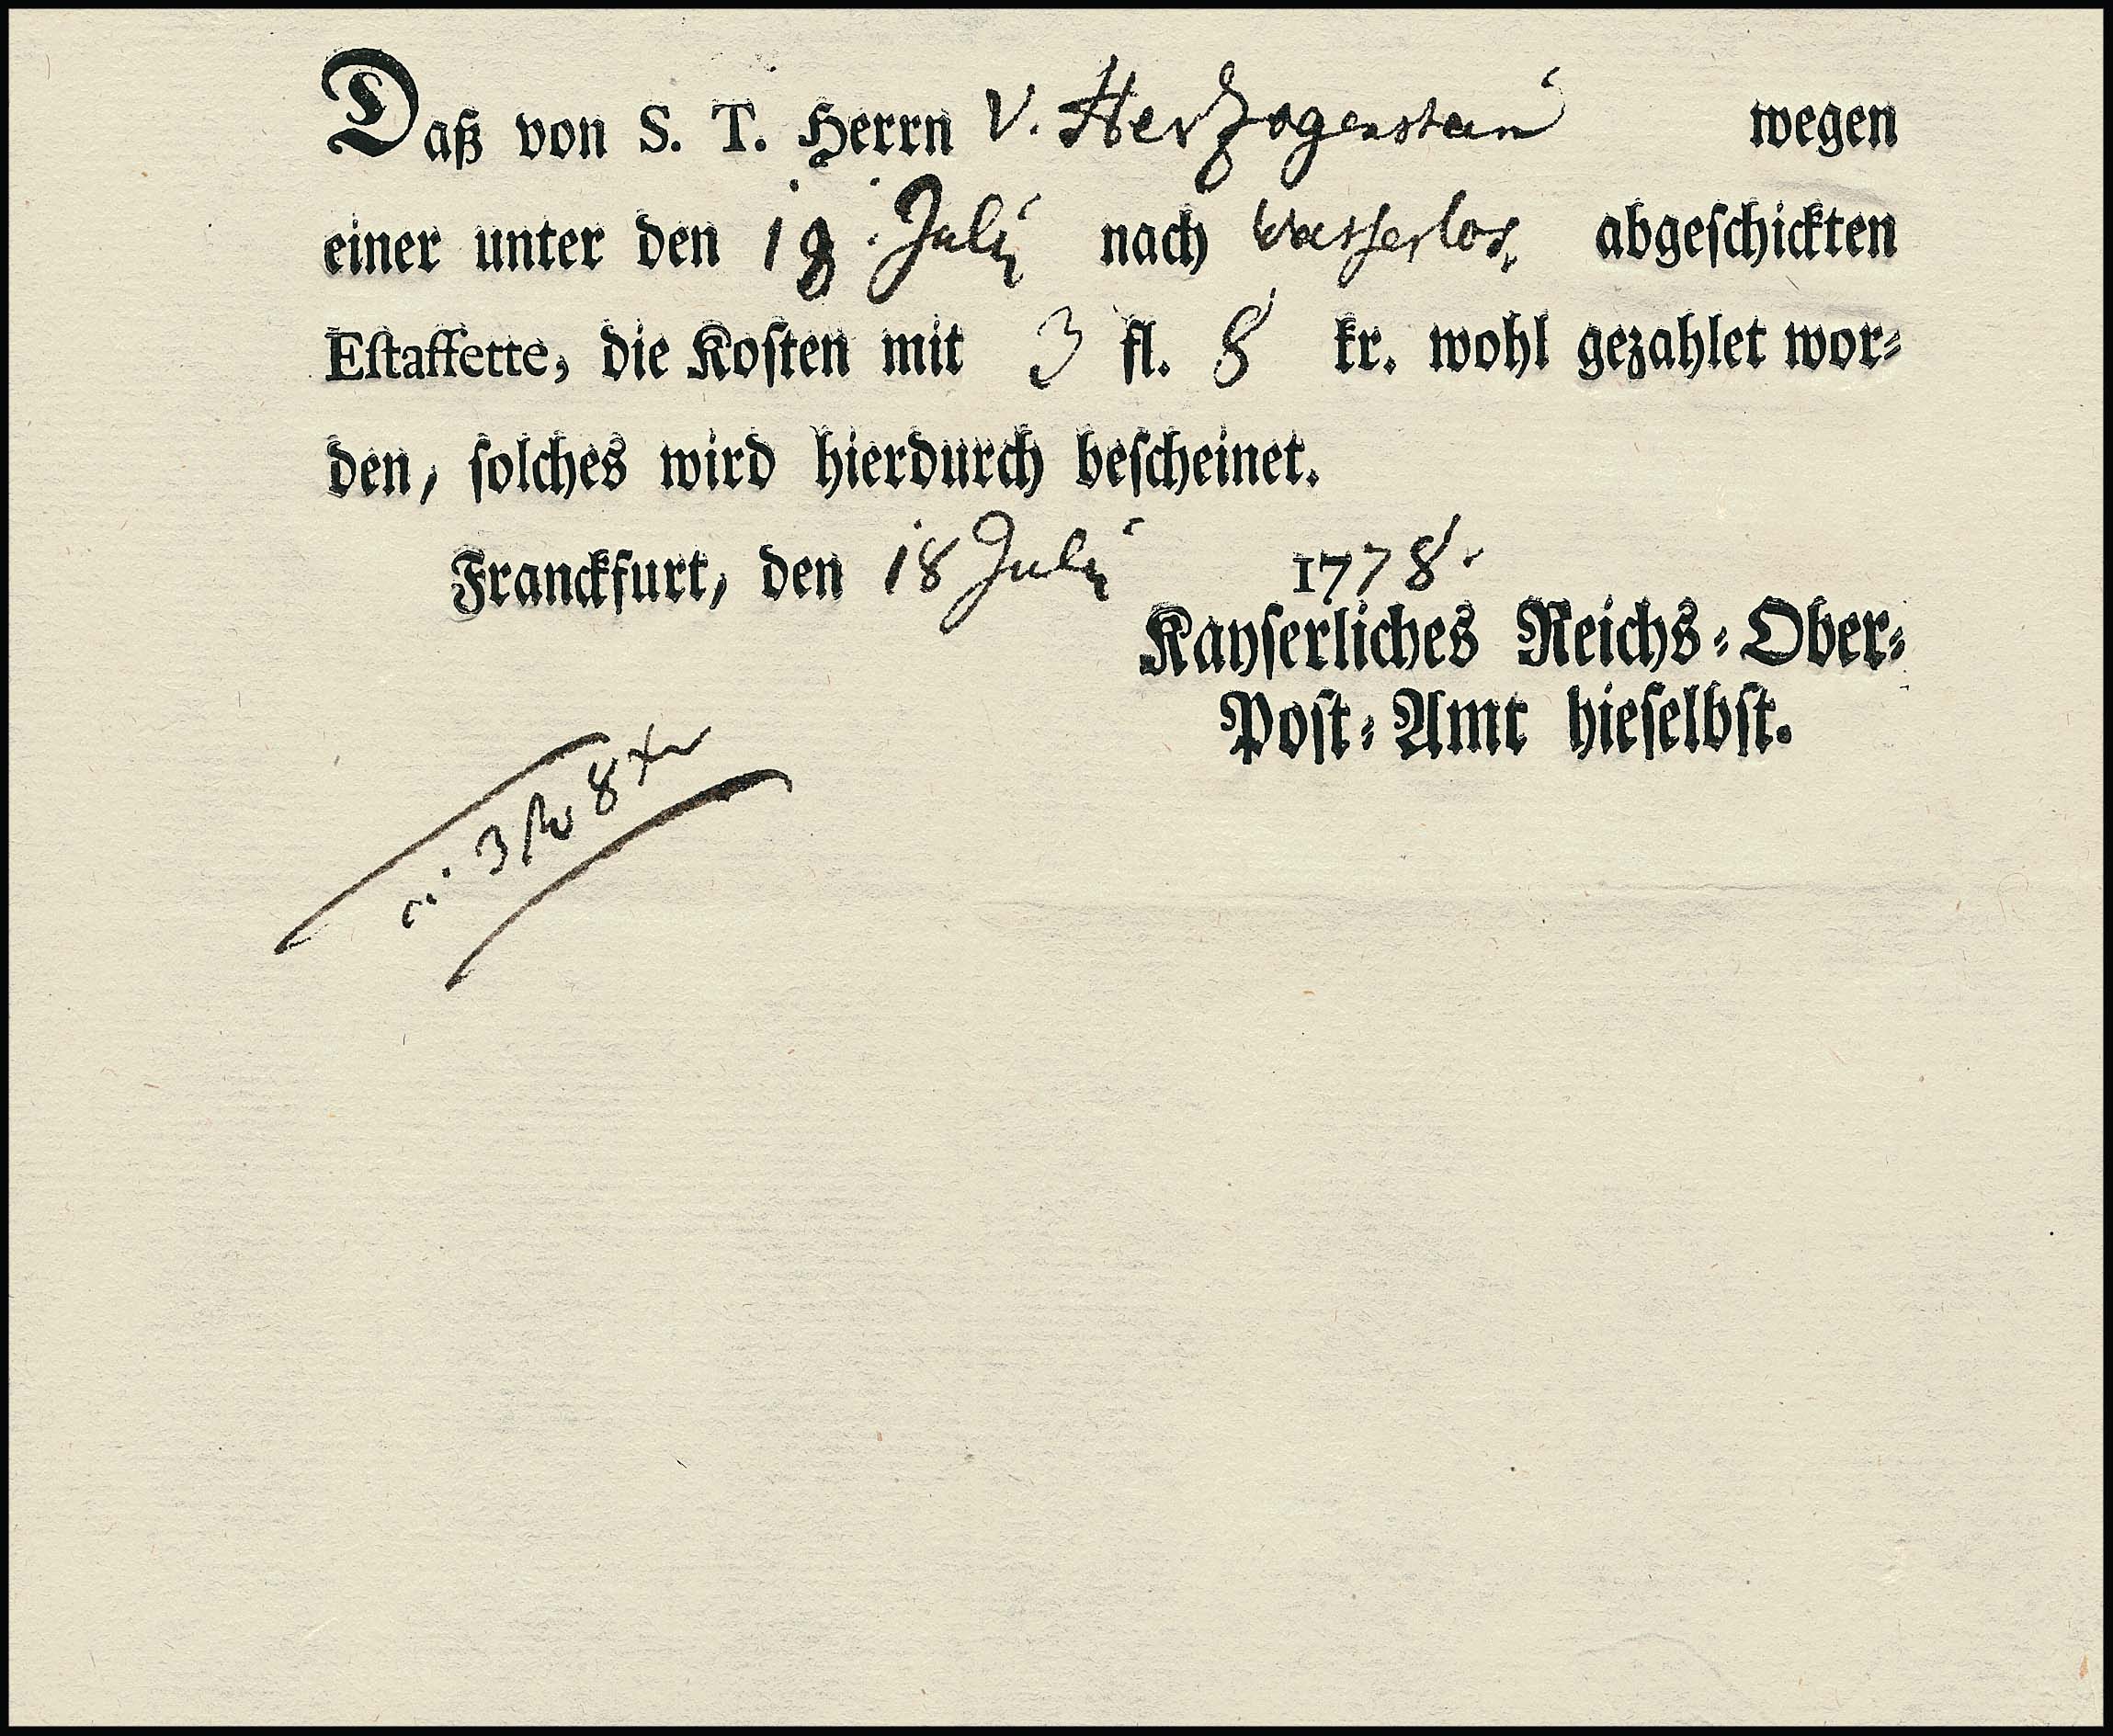 Daß von S. T. Herrn v. Herzogenstein wegen
einer unter den 18. July nach Wasserlos, abgeschickten
Estaffette, die Kosten mit 3 fl. 8 kr. wohl gezahlet wor⸗
den, solches wird hierdurch bescheinet.
Franckfurt, den 18 July 1778.
Kayserliches Reichs⸗Ober⸗
Post⸗Amt hieselbst.
3 fl 8 xr